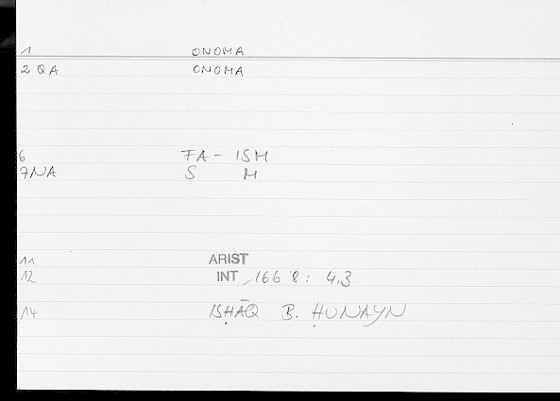 1 ONOMA
2 QA ONOMA
6 FA - ISM
7NA S M
11 ARIST
12 INT 16a 8 : 4,3
14 ISḤĀQ B. ḤUNAYN